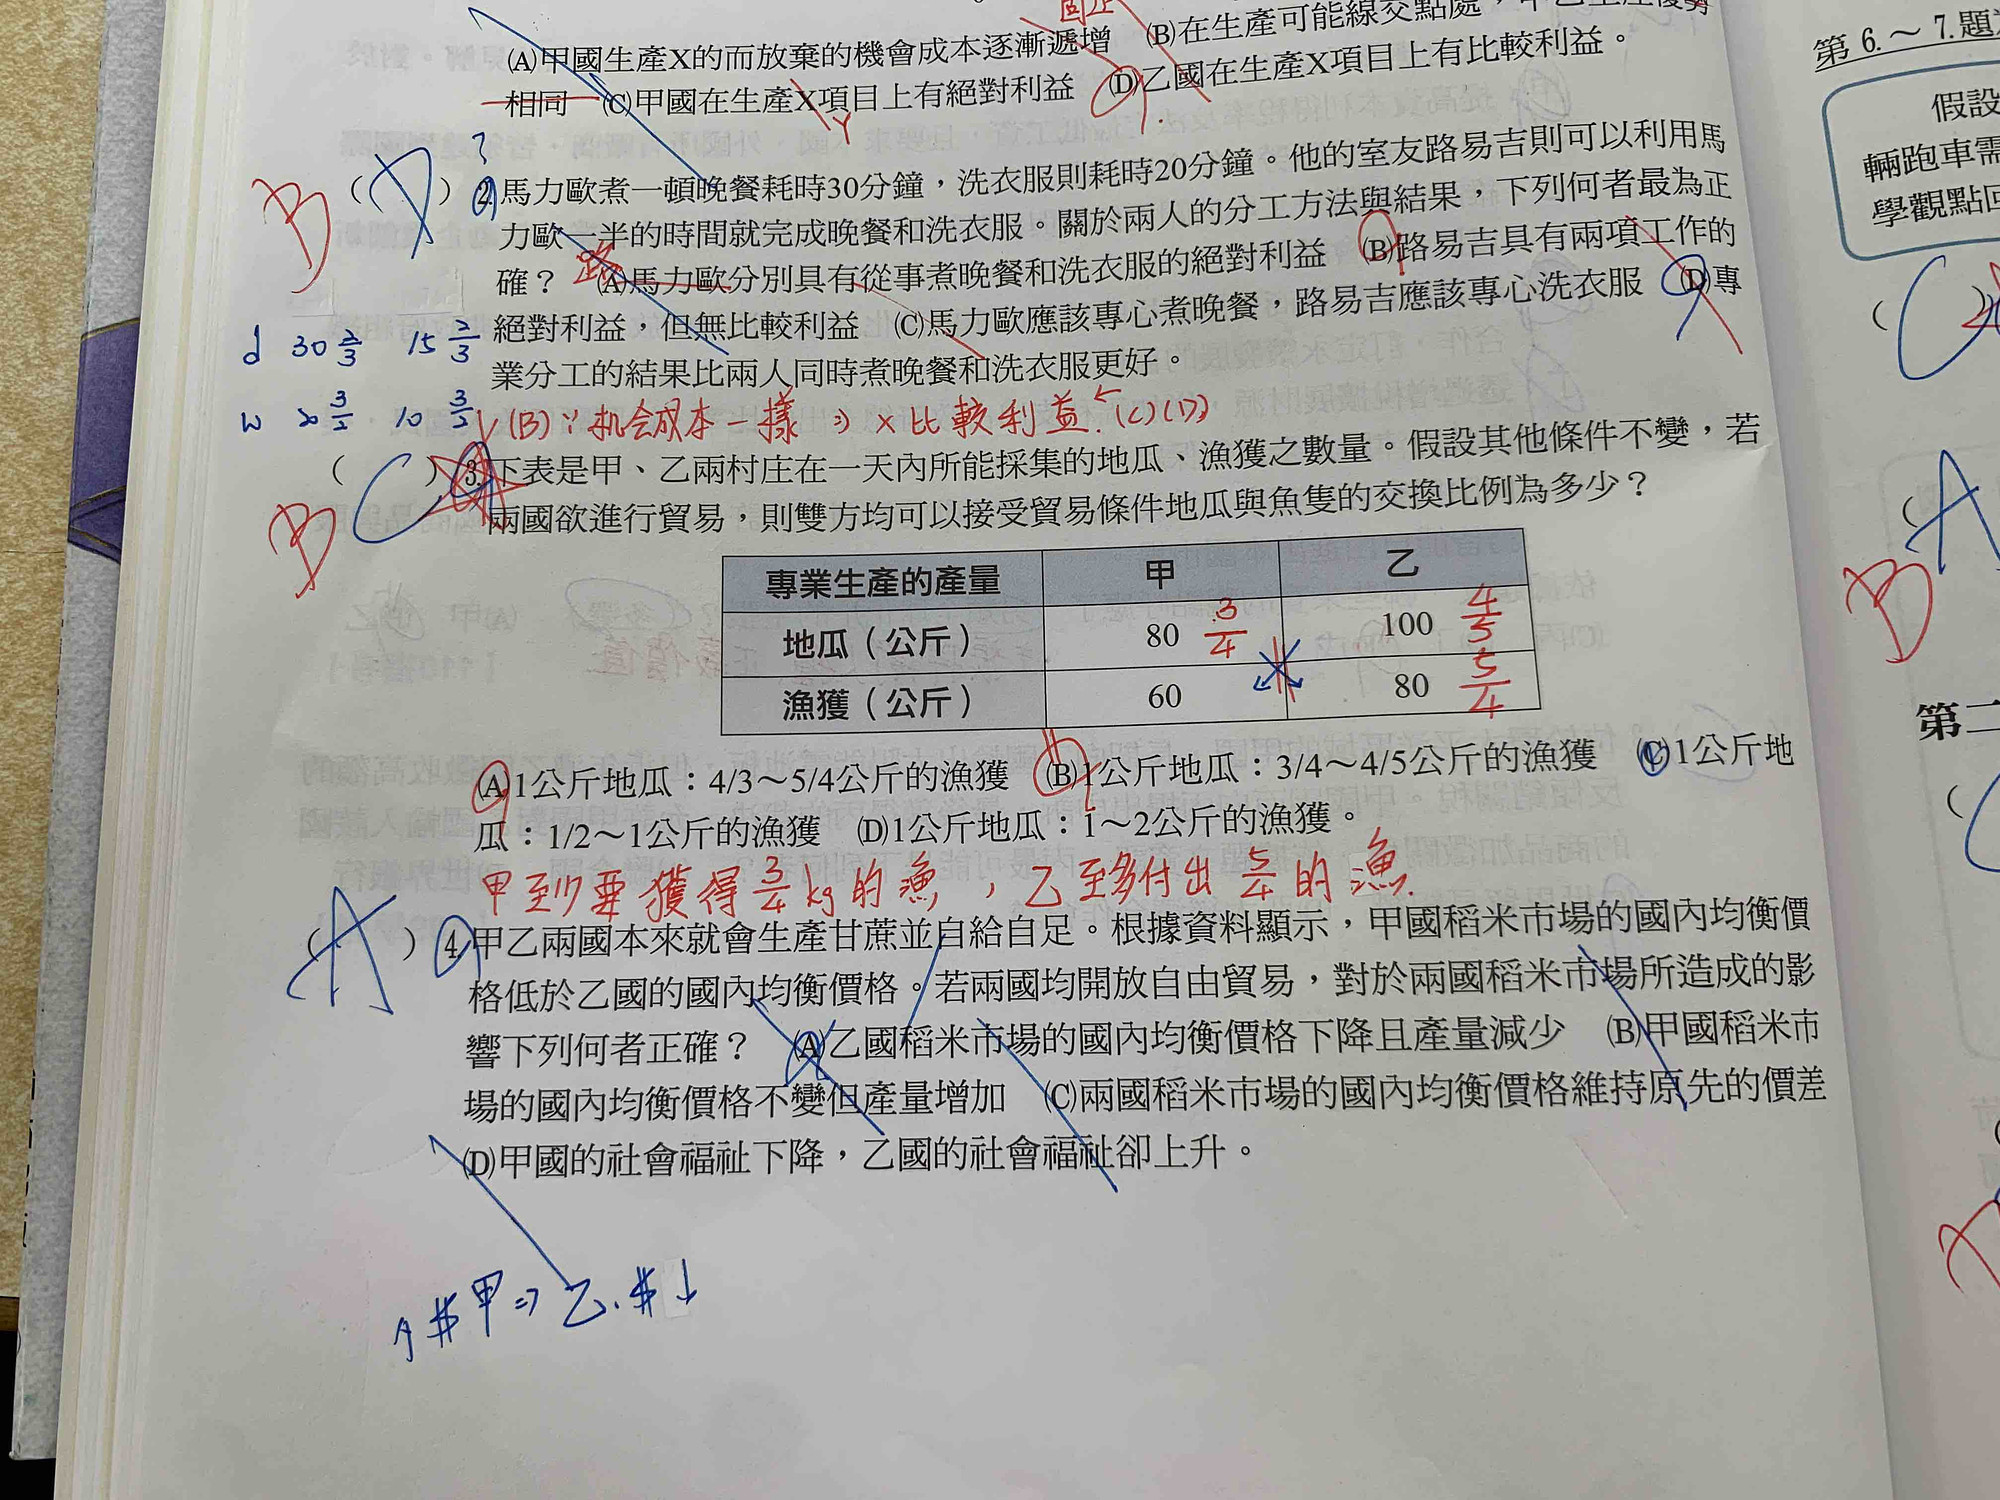 固定
(A)甲國生產X的而放棄的機會成本逐漸遞增 (B)在生產可能線交點處，甲乙生產優勢
相同 (C)甲國在生產X項目上有絕對利益 (D)乙國在生產X項目上有比較利益。
Y
?
B (D) 2.馬力歐煮一頓晚餐耗時30分鐘，洗衣服則耗時20分鐘。他的室友路易吉則可以利用馬
力歐一半的時間就完成晚餐和洗衣服。關於兩人的分工方法與結果，下列何者最為正
確？ (A)馬力歐分別具有從事煮晚餐和洗衣服的絕對利益 (B)路易吉具有兩項工作的
路
絕對利益，但無比較利益 (C)馬力歐應該專心煮晚餐，路易吉應該專心洗衣服 (D)專
業分工的結果比兩人同時煮晚餐和洗衣服更好。
d 30 2/3 15 2/3
w 20 3/2 10 3/2
(B)∵机会成本一樣 ⇒ ×比較利益.←(C)(D)
B (C) 3.下表是甲、乙兩村庄在一天內所能採集的地瓜、漁獲之數量。假設其他條件不變，若
兩國欲進行貿易，則雙方均可以接受貿易條件地瓜與魚隻的交換比例為多少？
專業生產的產量 甲 乙
地瓜（公斤） 80 3/4 100 4/5
漁獲（公斤） 60 80 5/4
(A)1公斤地瓜：4/3～5/4公斤的漁獲 (B)1公斤地瓜：3/4～4/5公斤的漁獲 (C)1公斤地
瓜：1/2～1公斤的漁獲 (D)1公斤地瓜：1～2公斤的漁獲。
甲至少要獲得3/4kg的漁，乙至多付出5/4的漁.
(A) 4.甲乙兩國本來就會生產甘蔗並自給自足。根據資料顯示，甲國稻米市場的國內均衡價
格低於乙國的國內均衡價格。若兩國均開放自由貿易，對於兩國稻米市場所造成的影
響下列何者正確？ (A)乙國稻米市場的國內均衡價格下降且產量減少 (B)甲國稻米市
場的國內均衡價格不變但產量增加 (C)兩國稻米市場的國內均衡價格維持原先的價差
(D)甲國的社會福祉下降，乙國的社會福祉卻上升。
↑$甲⇒乙.$↓
第 6.～7.題
假設
輛跑車需
學觀點回
( C
( A
B
第二
(